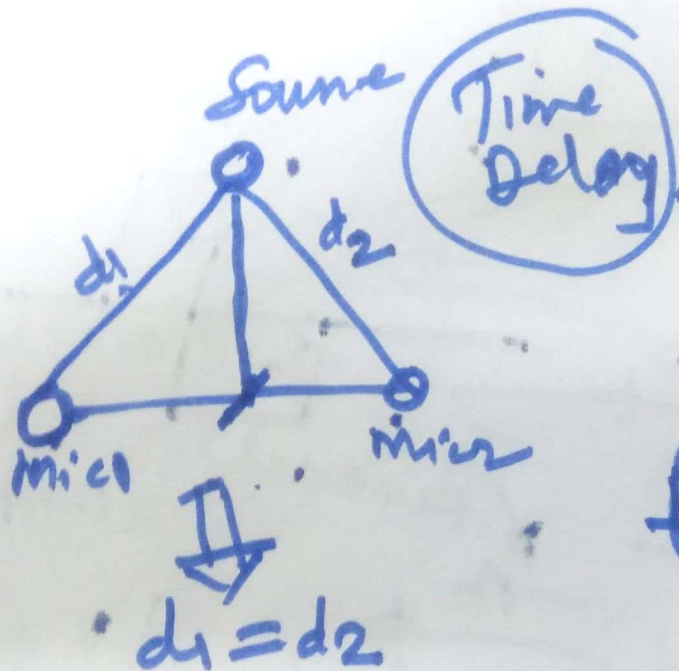 Source
Time
Delay
d1
d2
mic1
mic2
d1 = d2